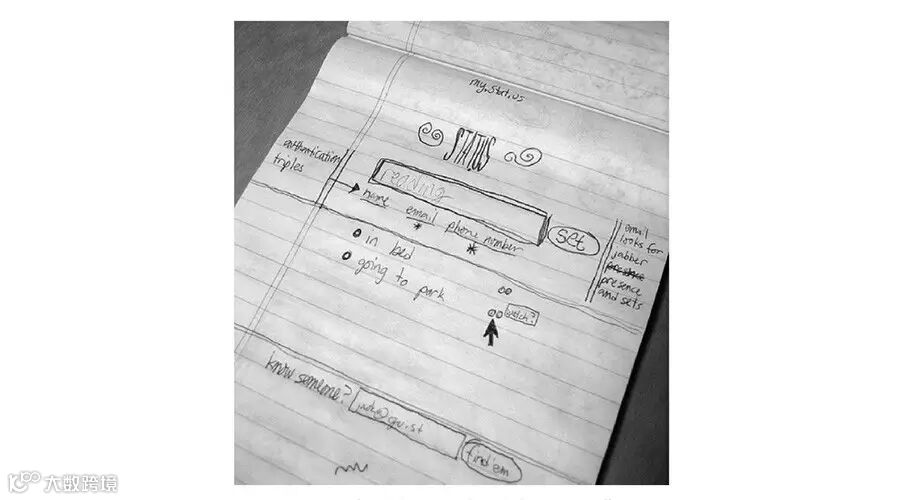 my.stat.us
STATUS
authentication
triples
reading
name email phone number
set
email
looks for
jabber
presence
and sets
in bed
going to park
watch?
know someone?
find'em
大数跨境